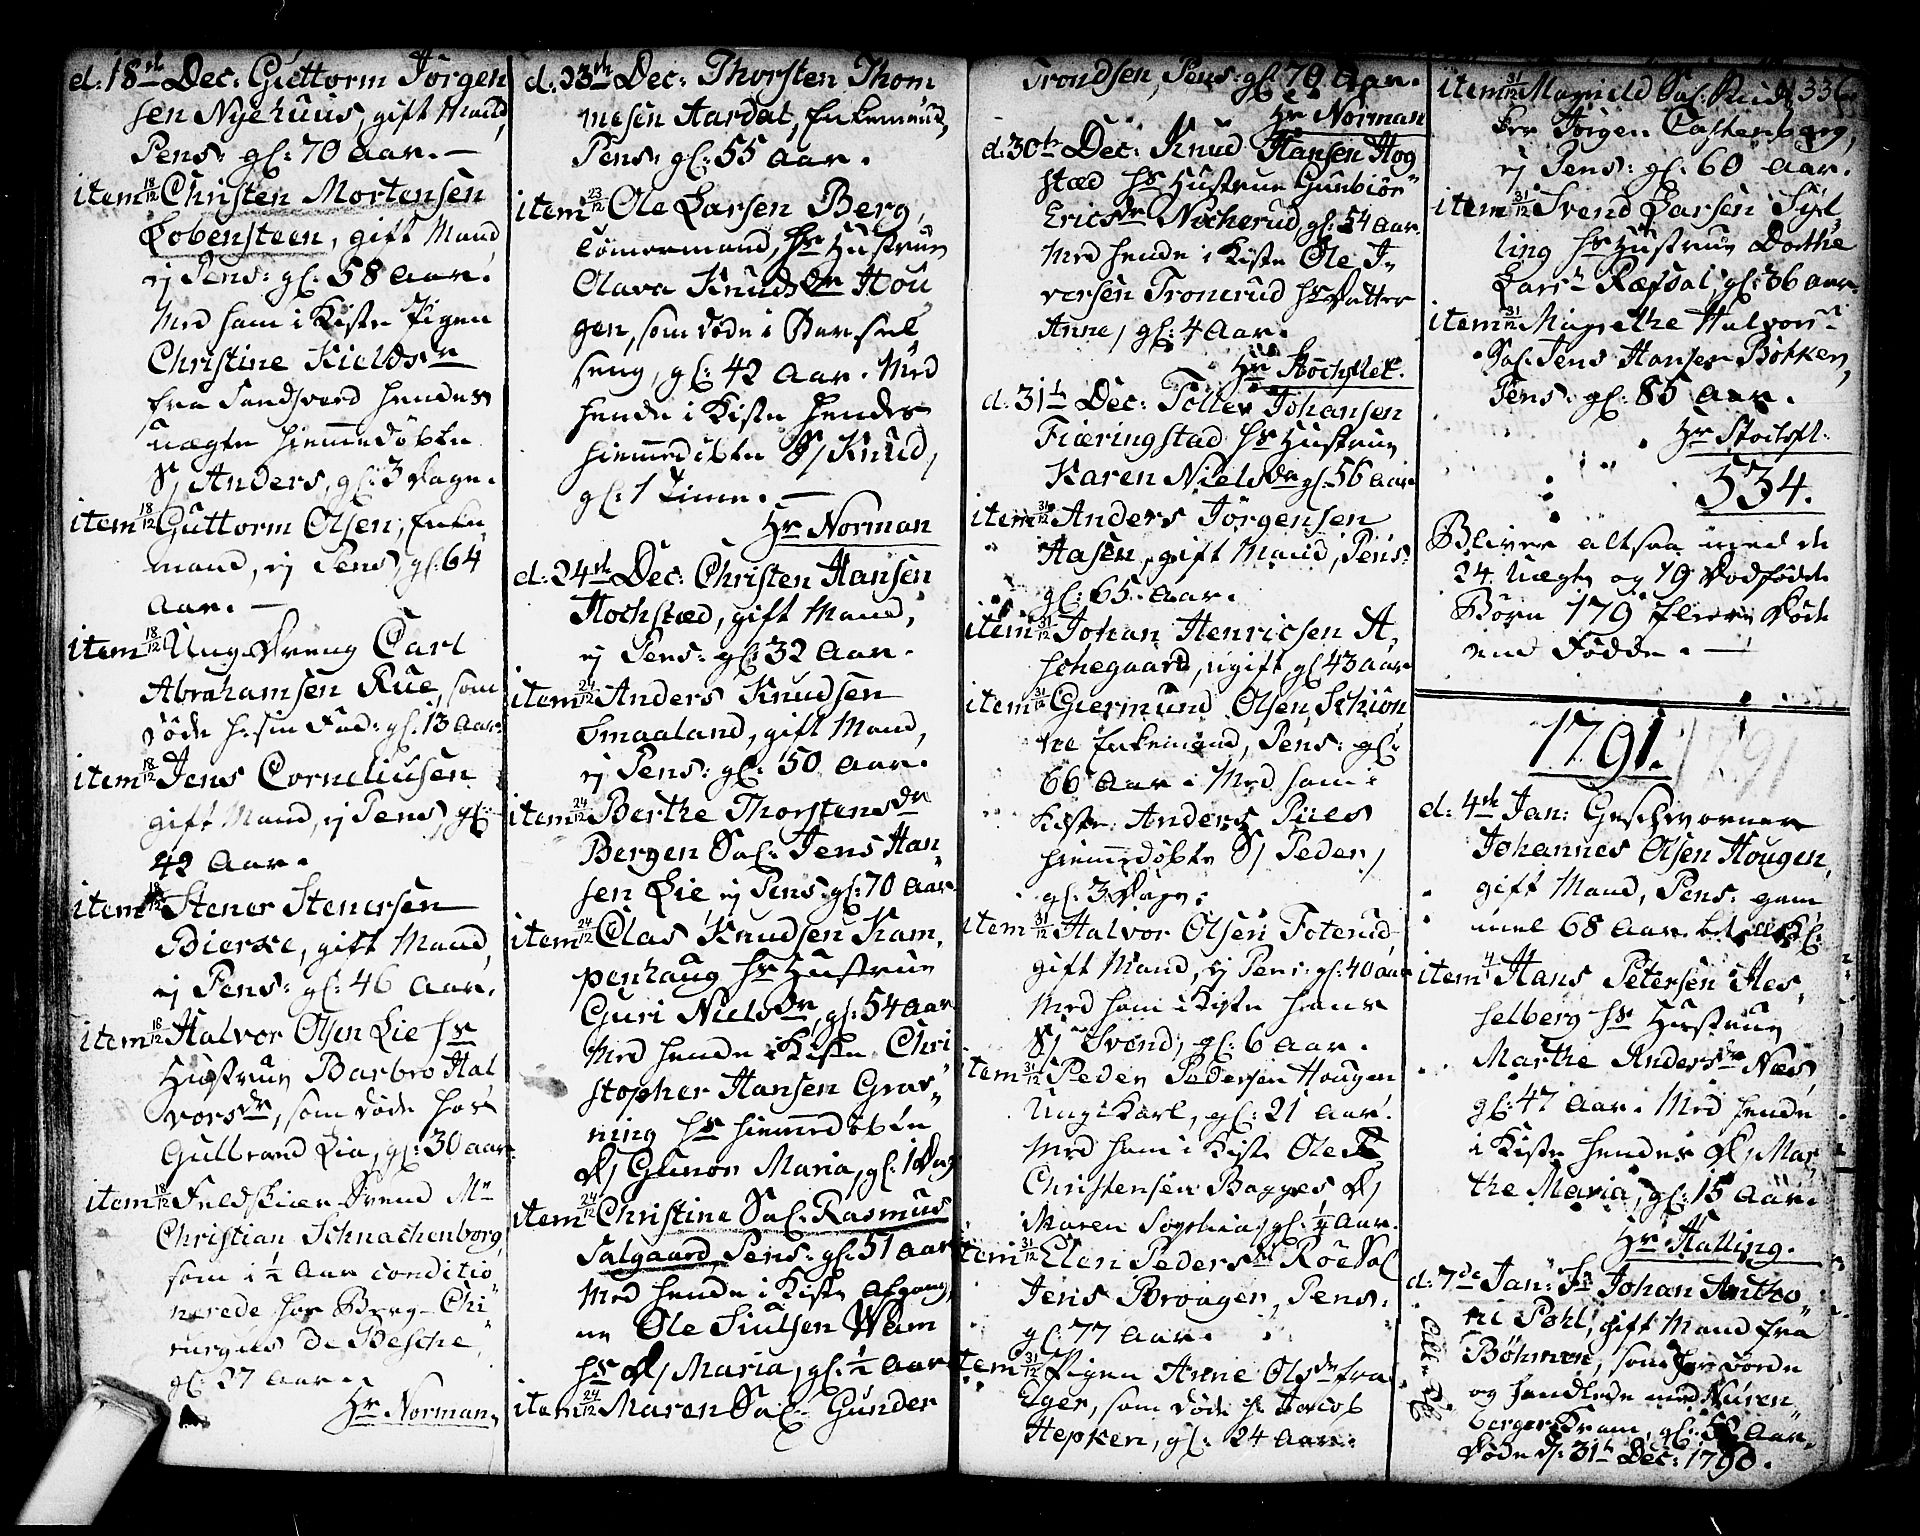 d: 18de Dec: Guttorm Jörgen
sen Nyehuus, gift Mand,
Pens: gl: 70 Aar. —
item 18/12 Christen Mortensen
Lobensteen, gift Mand
ej Pens: gl: 58 Aar.
Med ham i Kiste Pigen
Christine Kieldsdr
fra Sandsverd hendes
uægte hiemmedöbte
S/ Anders, gl: 3 Dage.
item 18/12 Guttorm Olsen, Enke
mand, ej Pens, gl: 64
Aar. —
item 18/12 Ung Dreng Carl
Abrahamsen Rue, som
döde h: sin Fad: gl: 13 Aar.
item 18/12 Jens Corneliusen
gift Mand, ej Pens, gl:
42 Aar.
item 18/12 Stener Stenersen
Bierke, gift Mand,
ej Pens: gl: 46 Aar.
item 18/12 Halvor Olsen Lie hs
Hustrue Barbro Hal
vorsdr, som döde hos
Gulbrand Lia, gl: 30 Aar.
item 18/12 Feldskiær-Svend Mr
Christian Schnachenborg,
som i 1/2 Aar conditio
nerede hos Berg-Chi
rurgus de Besche,
gl: 27 Aar.
Hr Norman.
d: 23de Dec: Thorsten Thom
mesen Aardal, Enkemand,
Pens: gl: 55 Aar.
item 23/12 Ole Larsen Berg,
Tömermand, hs Hustrue
Olava Knudsdr Hou
gen, som döde i Barsel
seng, gl: 42 Aar. Med
hende i Kiste hendes
hiemmedöbte S/ Knud,
gl: 1 Time. —
Hr Norman
d: 24de Dec: Christen Hansen
Hochstæd, gift Mand,
ej Pens: gl: 32 Aar.
item 24/12 Anders Knudsen
Smaaland, gift Mand,
ej Pens: gl: 50 Aar.
item 24/12 Berthe Thorstensdr
Bergen Sal: Jens Han
sen Lie ej Pens: gl: 70 Aar.
item 24/12 Clas Knudsen Kam
penhaug hs Hustrue
Guri Nielsdr, gl: 54 Aar
Med hende i Kiste Chri
stopher Hansen Gras
ning hs hiemmedöbte
D/ Gunor Maria, gl: 1 Dag
item 24/12 Christine Sal: Rasmus
Salgaard Pens: gl: 51 Aar
Med hende i Kiste Afgang
ne Ole Siulsen Wam
hs D/ Maria, gl: 1/2 Aar
item 24/12 Maren Sal: Gunder
Trondsen, Pens: gl: 70 Aar.
Hr Norman
d: 30te Dec: Knud Hansen Hog
stæd hs Hustrue Gunbiör
Ericsdr Nocherud, gl: 54 Aar.
Med hende i Kiste Ole I
versen Tronerud hs Datter
Anne, gl: 4 Aar.
Hr Stochflet.
d: 31te Dec: Tollev Johansen
Fiæringstad hs Hustrue
Karen Nielsdr gl: 56 Aar
item 31/12 Anders Jörgensen
Aasen, gift Mand, Pens:
gl: 65 Aar.
item 31/12 Johan Henricsen A
schegaard, ugift, gl: 43 Aar
item 31/12 Giermund Olsen Schiön
ne Enkemand, Pens: gl:
66 Aar. Med ham i
Kiste Anders Piles
hiemmedöbte S/ Peder,
gl: 3 Dage.
item 31/12 Halvor Olsen Foterud
gift Mand, ej Pens: gl: 40 Aar
Med ham i Kiste hans
S/ Svend, gl: 6 Aar.
item 31/12 Peder Pedersen Hougen
Ung-Karl, gl: 21 Aar.
Med ham i Kiste Ole
Christensen Bagges D/
Maren Sophia, gl: 1/4 Aar.
item 31/12 Elen Pedersdr Roe Sal
Jens Broager, Pens:
gl: 77 Aar.
item 31/12 Pigen Anne Olsdr fra
Eger, som döde h: Jacob
Hepken, gl: 24 Aar.
336
item 31/12 Magnild Sal:
Jörgen Castenberg,
ej Pens: gl: 60 Aar.
item 31/12 Svend Larsen Syl
ling hs Hustrue Dorthe
Larsdr Ræfsal, gl: 36 Aar.
item 31/12 Margrethe Halvorsdr
Sal: Jens Hansen Botken,
Pens: gl: 85 Aar.
Hr Stochfl:
534.
Bliver altsaa med de
24 Uægte og 19 Dödfödde
Börn 179 fleere Döde
end Födde. —
1791.
1791
d: 4de Jan: Geschworner
Johannes Olsen Hougen,
gift Mand, Pens: gam
mel 68 Aar
item 4/1 Hans Petersen Hes
selberg hs Hustrue
Marthe Andersdr Næs,
gl: 47 Aar. Med hende
i Kiste hendes D/ Mar
the Maria, gl: 15 Aar.
Hr Halling.
d: 7de Jan: Johan Antho
ni Pohl, gift Mand fra
Böhmen, som her döde
og handlede med Nüren
berger Kram, gl: 52 Aar,
döde d: 31te Dec: 1790.